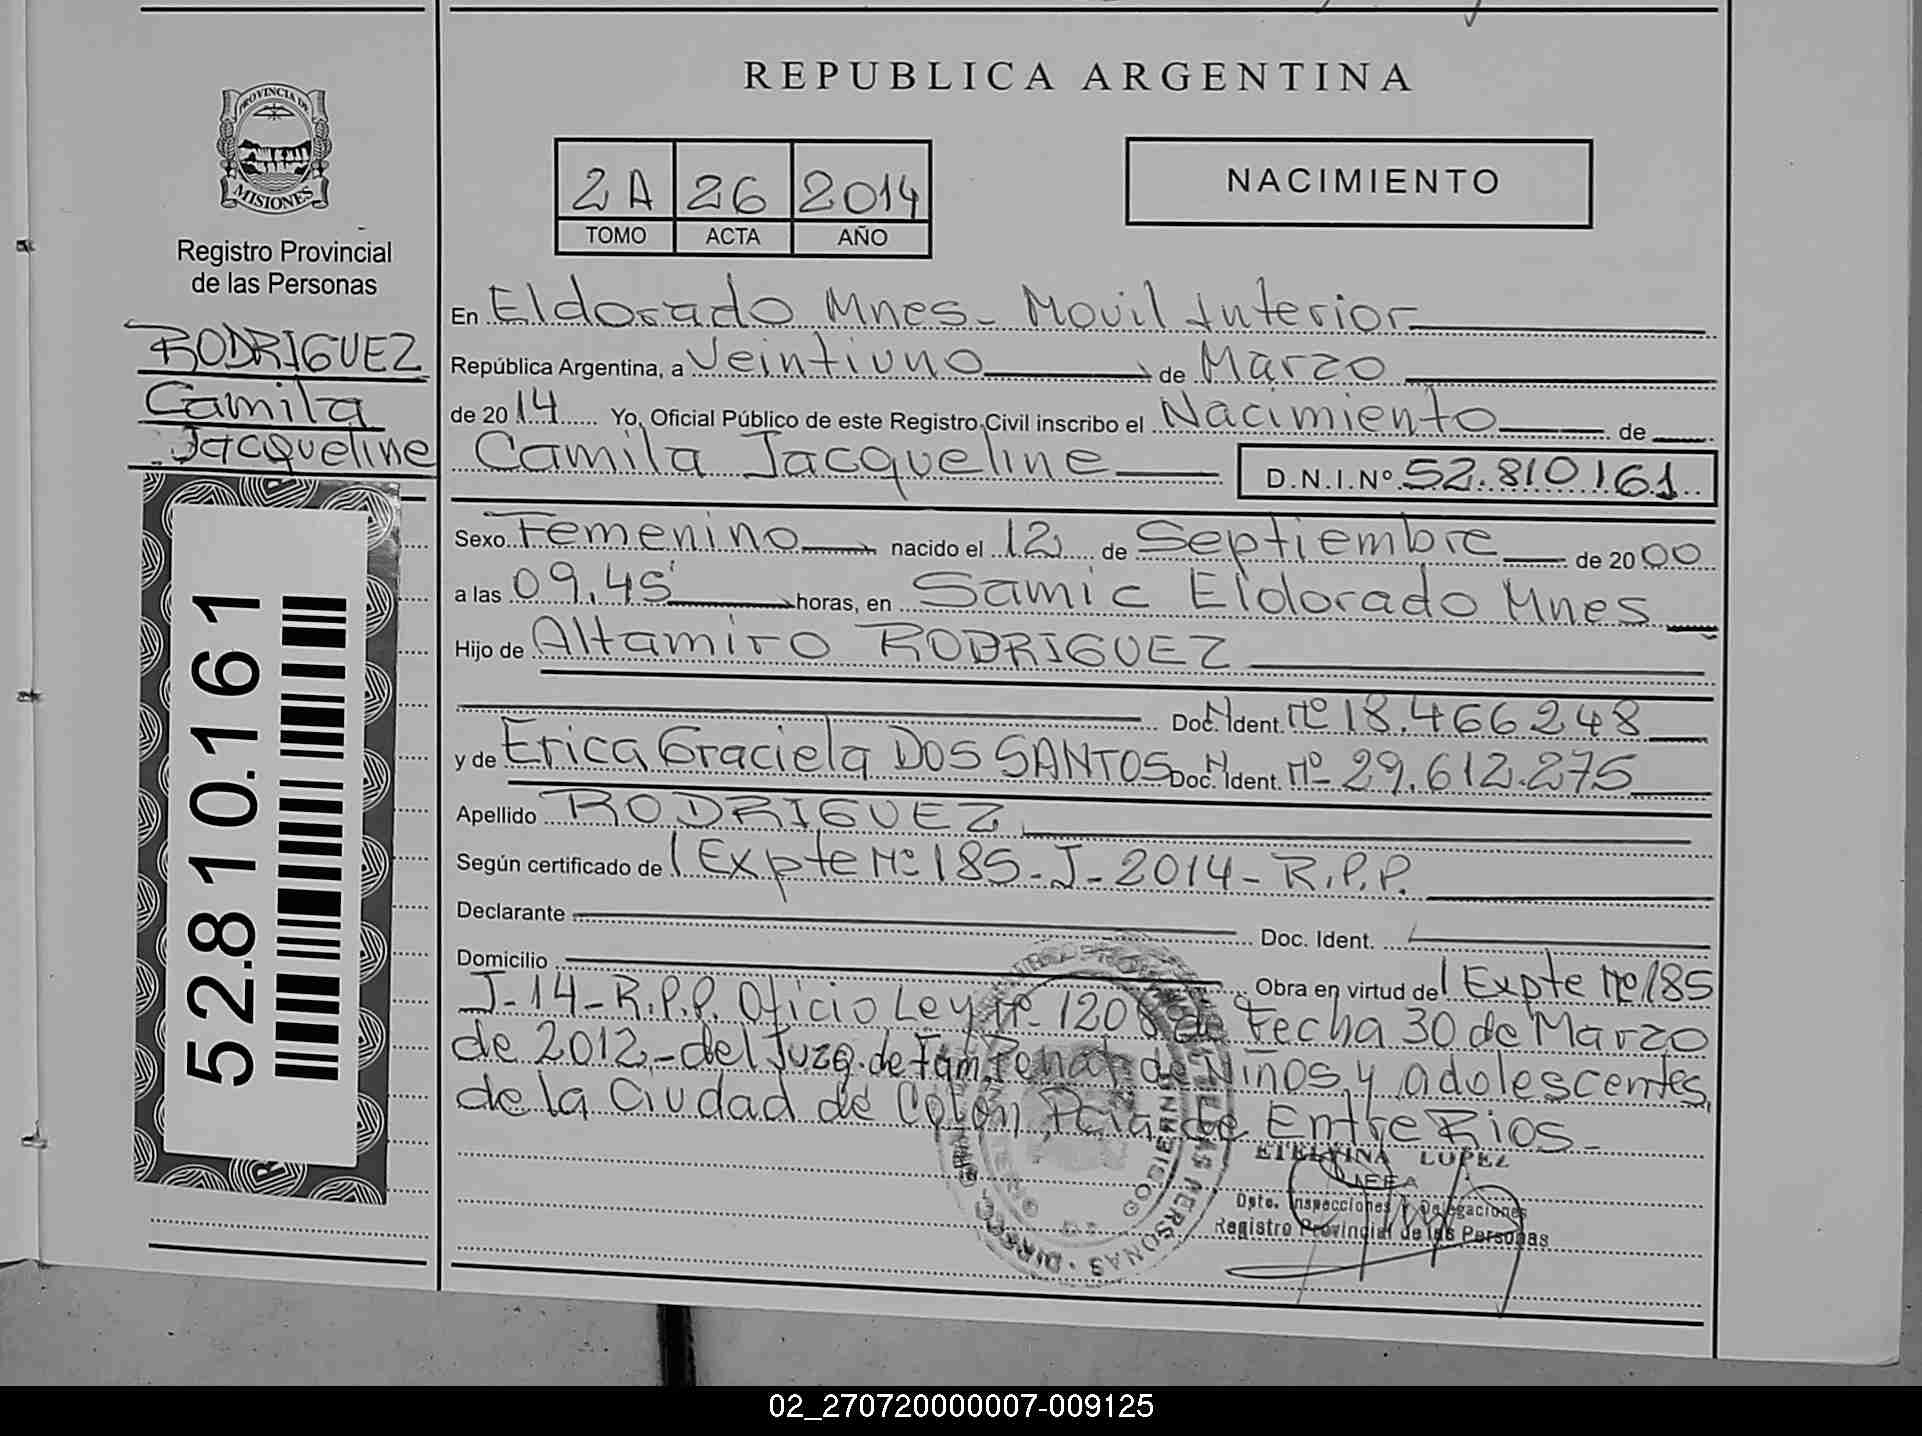 REPUBLICA ARGENTINA
PROVINCIA DE
MISIONES
Registro Provincial
de las Personas
RODRIGUEZ
Camila
Jacqueline
52.810.161
2A 26 2014
TOMO ACTA AÑO
NACIMIENTO
En Eldorado Mnes- Movil Interior
República Argentina, a Veintiuno de Marzo
de 2014 Yo, Oficial Público de este Registro Civil inscribo el Nacimiento de
Camila Jacqueline D.N.I.Nº 52.810.161
Sexo Femenino nacido el 12 de Septiembre de 2000
a las 09,45' horas, en Samic Eldorado Mnes
Hijo de Altamiro RODRIGUEZ
Doc. N. Ident. Nº 18.466248
y de Erica Graciela DOS SANTOS Doc. N. Ident. Nº 29.612.275
Apellido RODRIGUEZ
Según certificado de Expte Nº 185-J-2014-R.P.P.
Declarante Doc. Ident.
Domicilio Obra en virtud de Expte Nº 185
J-14-R.P.P. Oficio Ley Nº 120 de Fecha 30 de Marzo
de 2012,-del Juzg. de Fam, Penal de Niños y adolescentes,
de la Ciudad de Colón Pcia de Entre Rios-
ETELVINA LOPEZ
JEFA
Dpto. Inspecciones y Delegaciones
Registro Provincial de las Personas
02_270720000007-009125